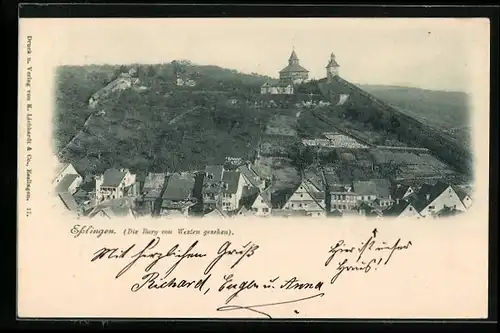 Druck u. Verlag von K. Liebhardt & Co, Esslingen. 17.
Eßlingen. (Die Burg von Westen gesehen).
Mit herzlichen Gruß
Richard, Eugen u. Anna
Hier ist unser
Haus!